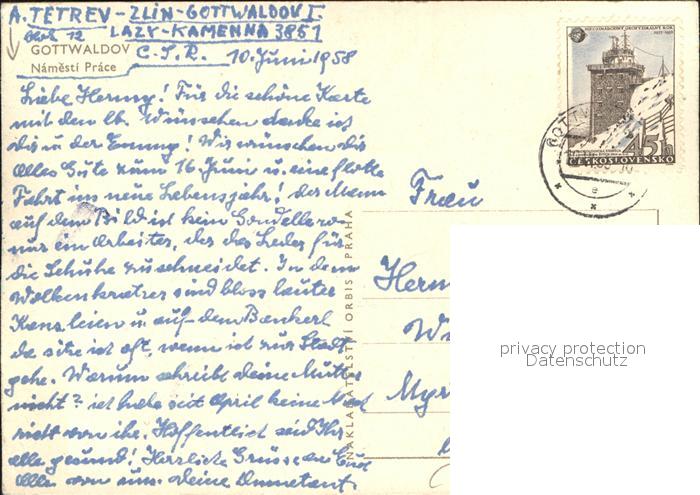 A. TETREV-ZLÍN-GOTTWALDOV I.
blok 12 LAZY-KAMENNA 3851
GOTTWALDOV
Náměstí Práce
Č.S.R. 10. Juni 1958
Liebe Hermy! Für die schöne Karte
mit den lb. Wünschen danke ich
dir u der Emmy! Wir wünschen dir
Alles Gute zum 16 Juni u. eine flotte
Fahrt ins neue Lebensjahr! der Mann
auf dem Bild ist kein
nur ein Arbeiter, der das Leder für
die Schuhe zuschneidet. In dem
Wolkenkratzer sind bloss lauter
Kanzleien u. auf dem Bankerl
da sitze ich oft, wenn ich zur Stadt
gehe. Warum schreibt deine Mutter
nicht? ich habe seit April keine Nach
richt von ihr. Hoffentlich seid Ihr
alle gesund! Herzliche Grüsse an Euch
Alle von uns. deine
NAKLADATELSTVÍ ORBIS PRAHA
45h
ČESKOSLOVENSKO
Frau
Herm
W
Myr
privacy protection
Datenschutz